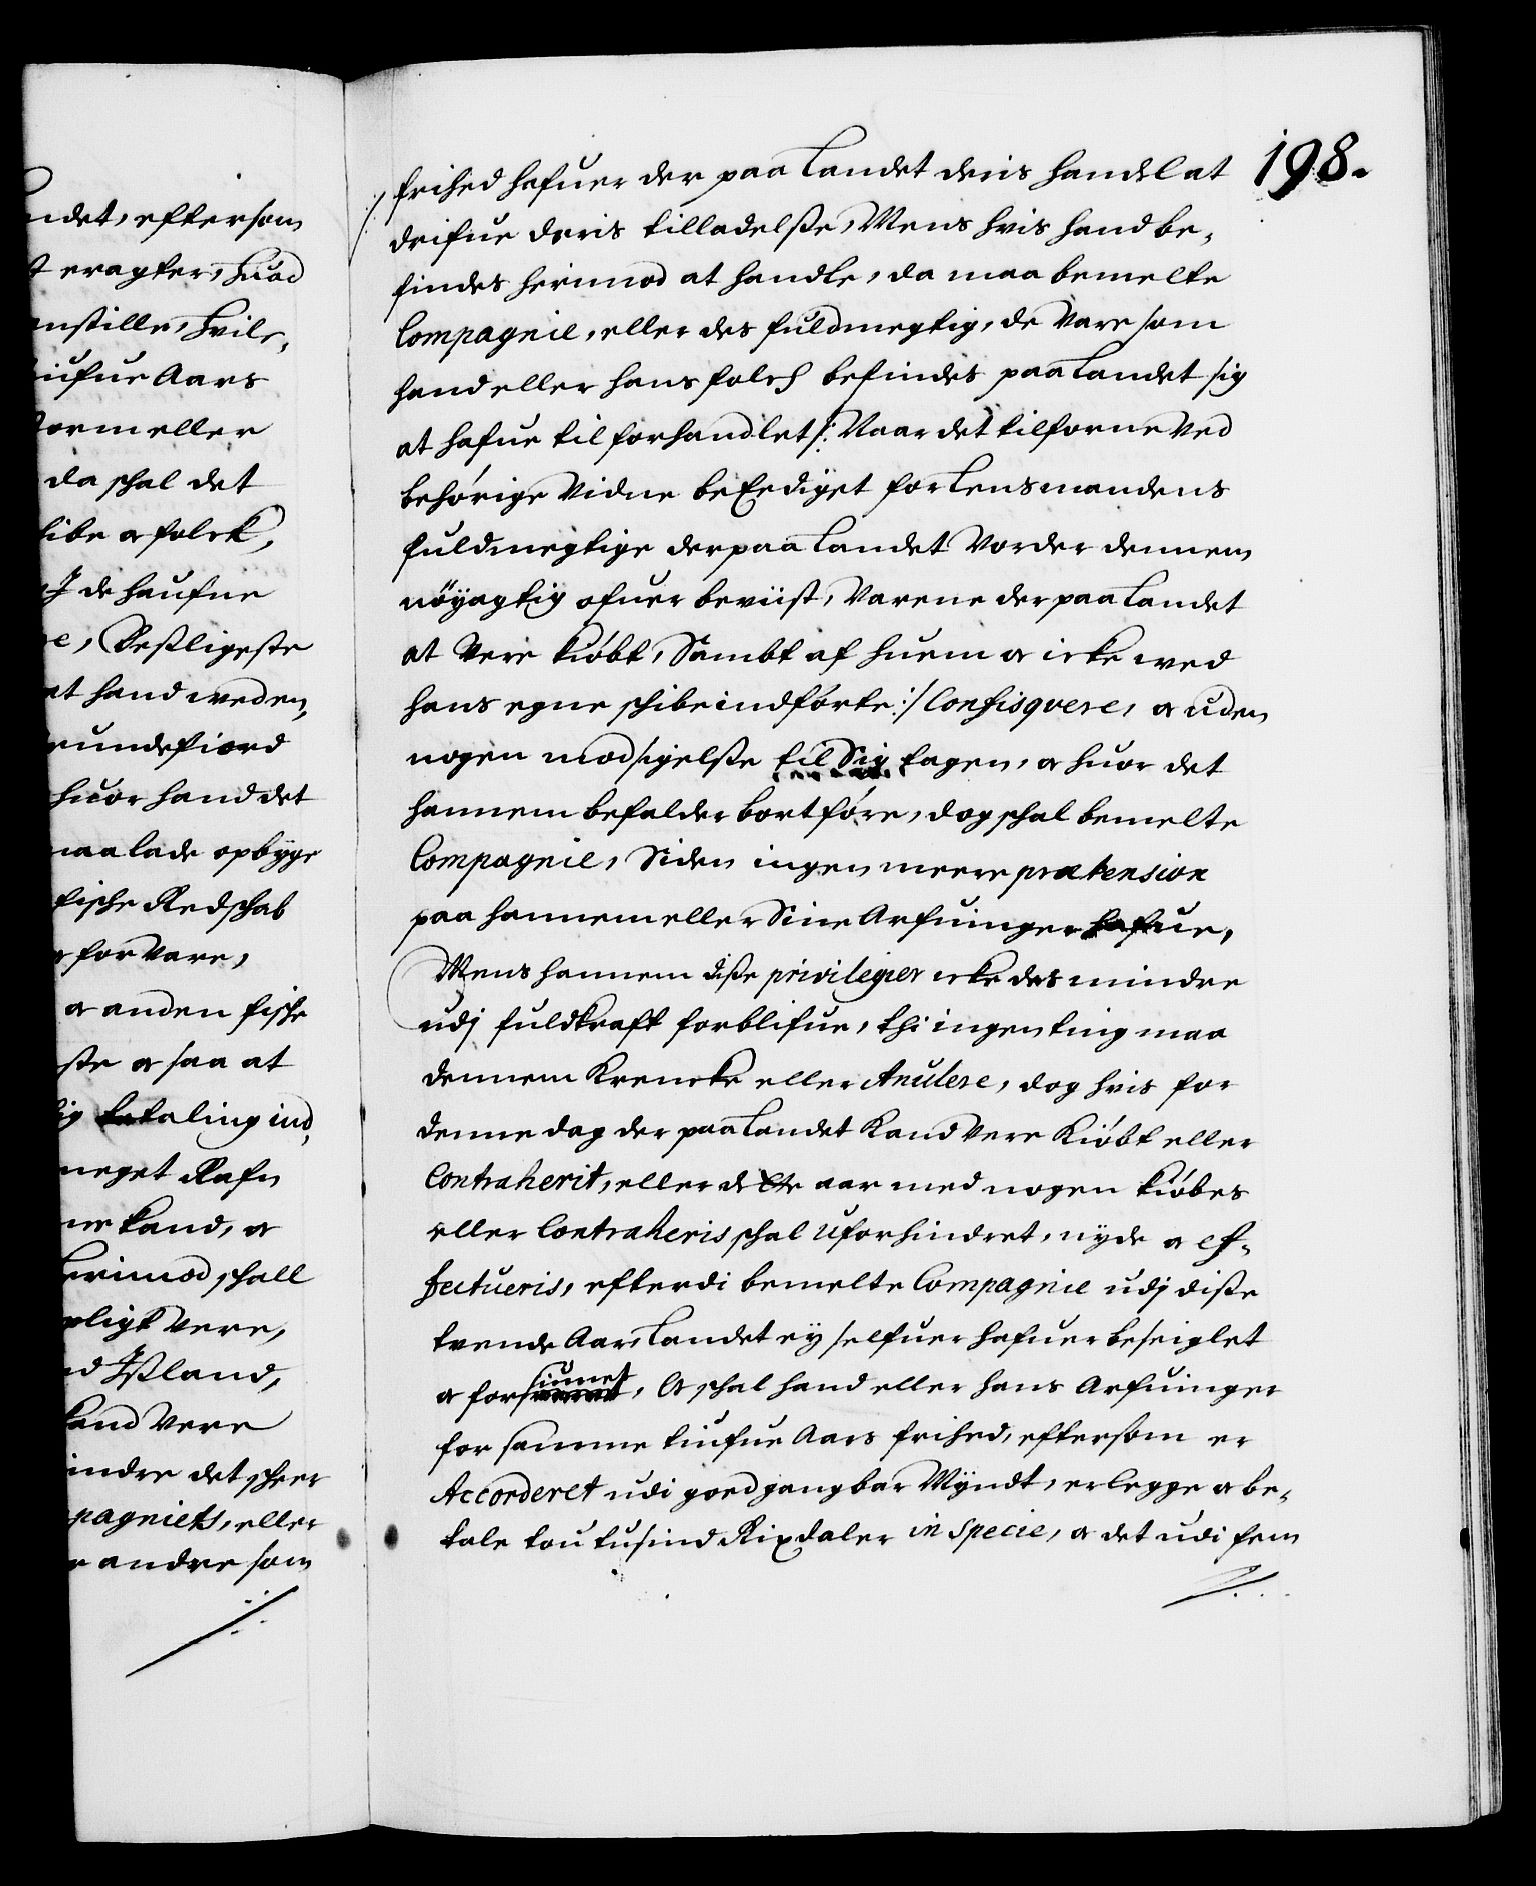 ndet, eftersom
t eragter, huad
enstille, huile,
iufue Aars
orm eller
da schal det
ibe och folck,
I de haufne
e, Desligeste
at hand weden,
rundefiord
huor hand det
maa lade opbÿge
fische Redschab
for Vare,
och anden fische
ste och saa at
ig betaling ind,
meget Rafn
ne kand, och
herimod, schall
pligt Vere,
d Jsland,
kand Vere
indre det scheer
pagniets, eller
e andre som
198.
frihed hafuer der paa Landet deris handel at
drifue deris tilladelsse, Mens hvis hand be,
findes herimod at handle, da maa bemelte
Compagnie, eller des fuldmegtig, de Vare som
hand eller hans folch befindes paa Landet sig
at hafue tilforhandlet /: Naar det tilforne Ved
behörige Vidne beEediget for Lensmandens
fuldmegtige der paa Landet Vorder dennem
nöÿagtig ofuer beviist, Varene der paa Landet
at Vere kiöbt, Sambt af huem och icke med
hans egne schibe indförte :/ Confisqvere, och uden
nogen modsigelsse til Sig tagen, och huor det
hannem befalder bortföre, dog schal bemelte
Compagnie, Siden ingen meere prætension
paa hannem eller Sine Arfuinger hafue,
Mens hannem disse privilegier icke des mindre
udj fuldkraft forblifue, thi ingen ting maa
dennem Krencke eller Anulere, dog hvis for
denne dag der paa Landet Kand Vere Kiöbt eller
Contraherit, eller dette aar med nogen kiöbes
eller Contraheris schal Uforhindret, nÿde och ef,
fectueris, efterdi bemelte Compagnie udj disse
tvende Aar, Landet eÿ selfuer hafuer beseiglet
och forsiumet, Och schal hand eller hans Arfuinger
for samme tiufue Aars frihed, eftersom er
Accorderet udi goed gangbar Mÿndt, erlegge och be,
tale tou tusind Rixdaler in Specie, och det udi fem